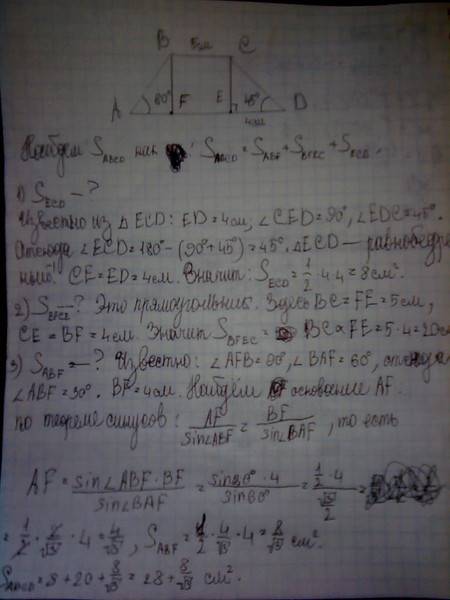 B 5см C
A 60° F E 45° D
4см
Найдём S_ABCD как S_ABCD = S_ABF + S_BFEC + S_ECD.
1) S_ECD — ?
Известно из △ ECD: ED = 4см, ∠CED = 90°, ∠EDC = 45°.
Отсюда ∠ECD = 180° − (90° + 45°) = 45°. △ECD — равнобедрен
ный! CE = ED = 4см. Значит: S_ECD = 1/2 · 4 · 4 = 8 см².
2) S_BFEC — ? Это прямоугольник. Здесь BC = FE = 5см,
CE = BF = 4см. Значит S_BFEC = BC × FE = 5 · 4 = 20см
3) S_ABF = — ? Известно: ∠AFB = 90°, ∠BAF = 60°, отсюда
∠ABF = 30°. BF = 4см. Найдём основание AF.
по теореме синусов: AF/sin∠ABF = BF/sin∠BAF, то есть
AF = sin∠ABF · BF / sin∠BAF = sin30° · 4 / sin60° = 1/2 · 4 / √3/2 =
= 1/2 · 2/√3 · 4 = 4/√3, S_ABF = 1/2 · 4/√3 · 4 = 8/√3 см².
S_ABCD = 8 + 20 + 8/√3 = 28 + 8/√3 см².